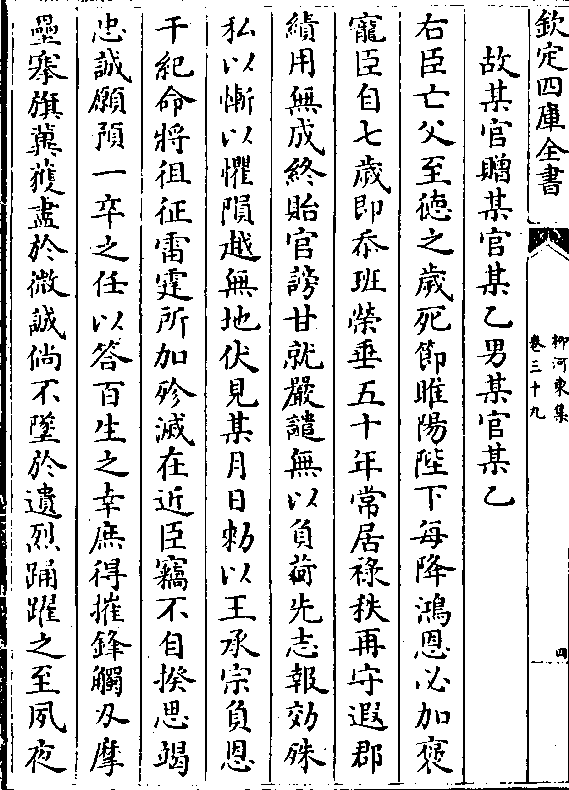 欽定四庫全書
柳河東集
卷三十九
四
故某官贈某官某乙男某官某乙
右臣亡父至徳之歲死節睢陽陛下每降鴻恩必加褒
寵臣自七歲即忝班榮垂五十年常居祿秩再守遐郡
績用無成終貽官謗甘就嚴譴無以負荷先志報効殊
私以慚以懼隕越無地伏見某月日勅以王承宗負恩
干紀命將徂征雷霆所加殄滅在近臣竊不自揆思竭
忠誠願預一卒之任以答百生之幸庶得摧鋒觸刃摩
壘搴旗冀獲盡於微誠倘不墜於遺烈踊躍之至夙夜